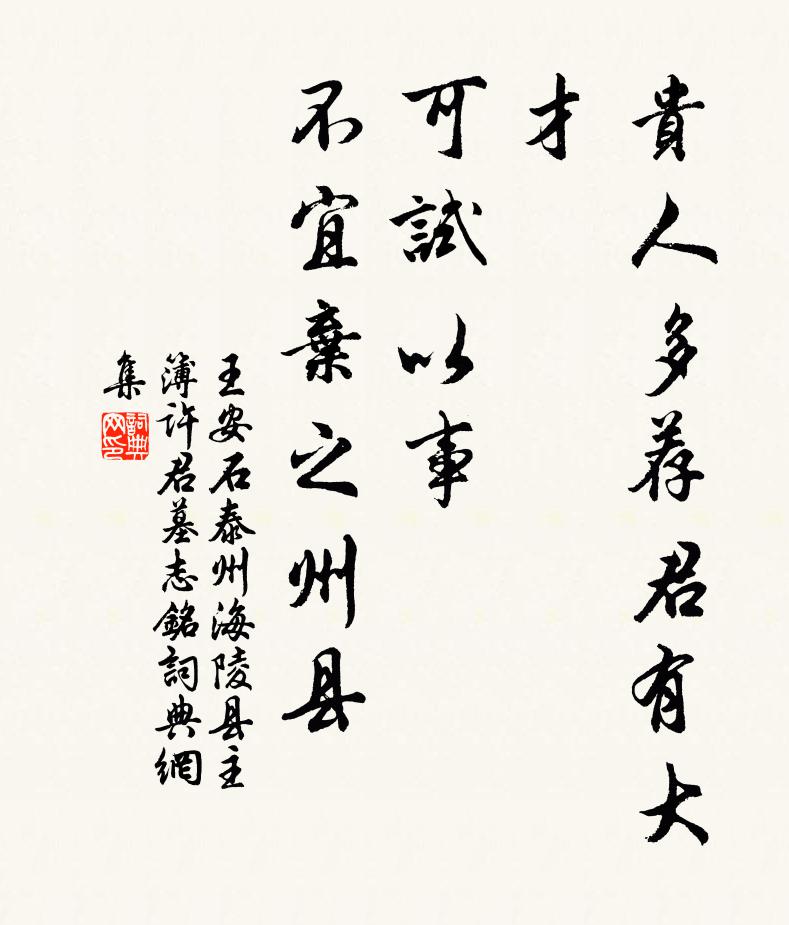 貴人多荐君有大
才
可試以事
不宜棄之州县
王安石泰州海陵县主
簿许君墓志銘詞典網
集
詞典
网印